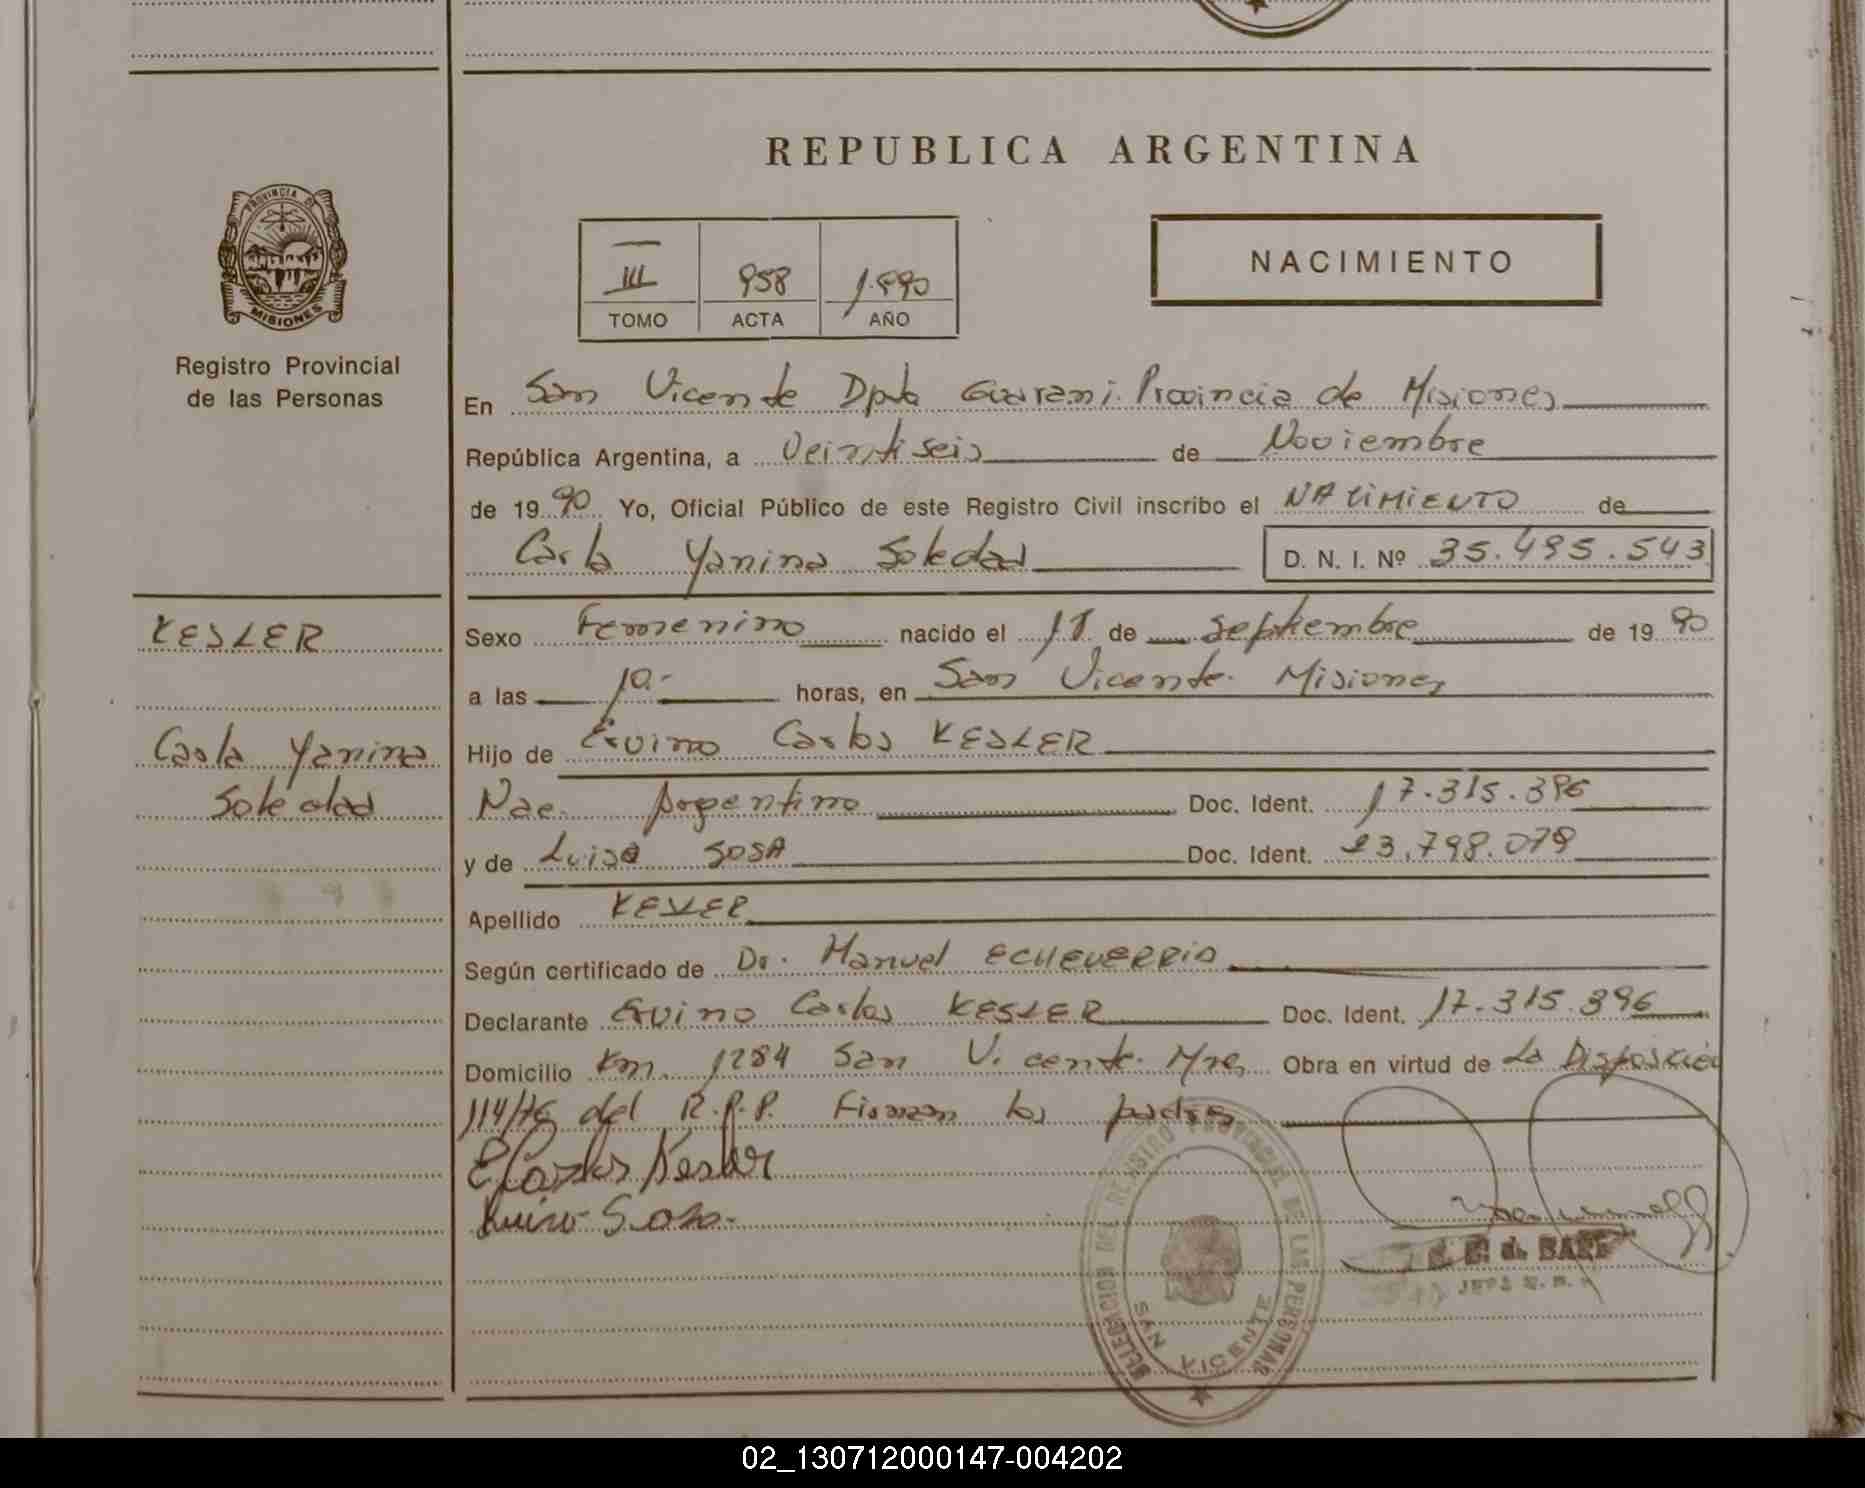 REPUBLICA ARGENTINA
PROVINCIA DE
MISIONES
Registro Provincial
de las Personas
III 958 1.990
TOMO ACTA AÑO
NACIMIENTO
En San Vicente Dpto Guarani. Provincia de Misiones
República Argentina, a Veintiseis de Noviembre
de 1990 Yo, Oficial Público de este Registro Civil inscribo el NACIMIENTO de
Carla Yanina Soledad D. N. I. Nº 35.495.543
KESLER
Carla Yanina
Soledad
Sexo Femenino nacido el de septiembre de 1990
a las 10.- horas, en San Vicente. Misiones
Hijo de Ervino Carlos KESLER
Nac. Argentino Doc. Ident. 17.315.396
y de Luisa SOSA Doc. Ident. 23.798.079
Apellido KESLER
Según certificado de Dr. Manuel ECHEVERRIA
Declarante Ervino Carlos KESLER Doc. Ident. 17.315.396
Domicilio Km. 1284 San Vicente. Mnes Obra en virtud de La Disposición
114/76 del R.P.P. Firman los padres
E Carlos Kesler
Luisa Sosa.
DEL REGISTRO PROVINCIAL DE LAS PERSONAS
SAN VICENTE
02_130712000147-004202